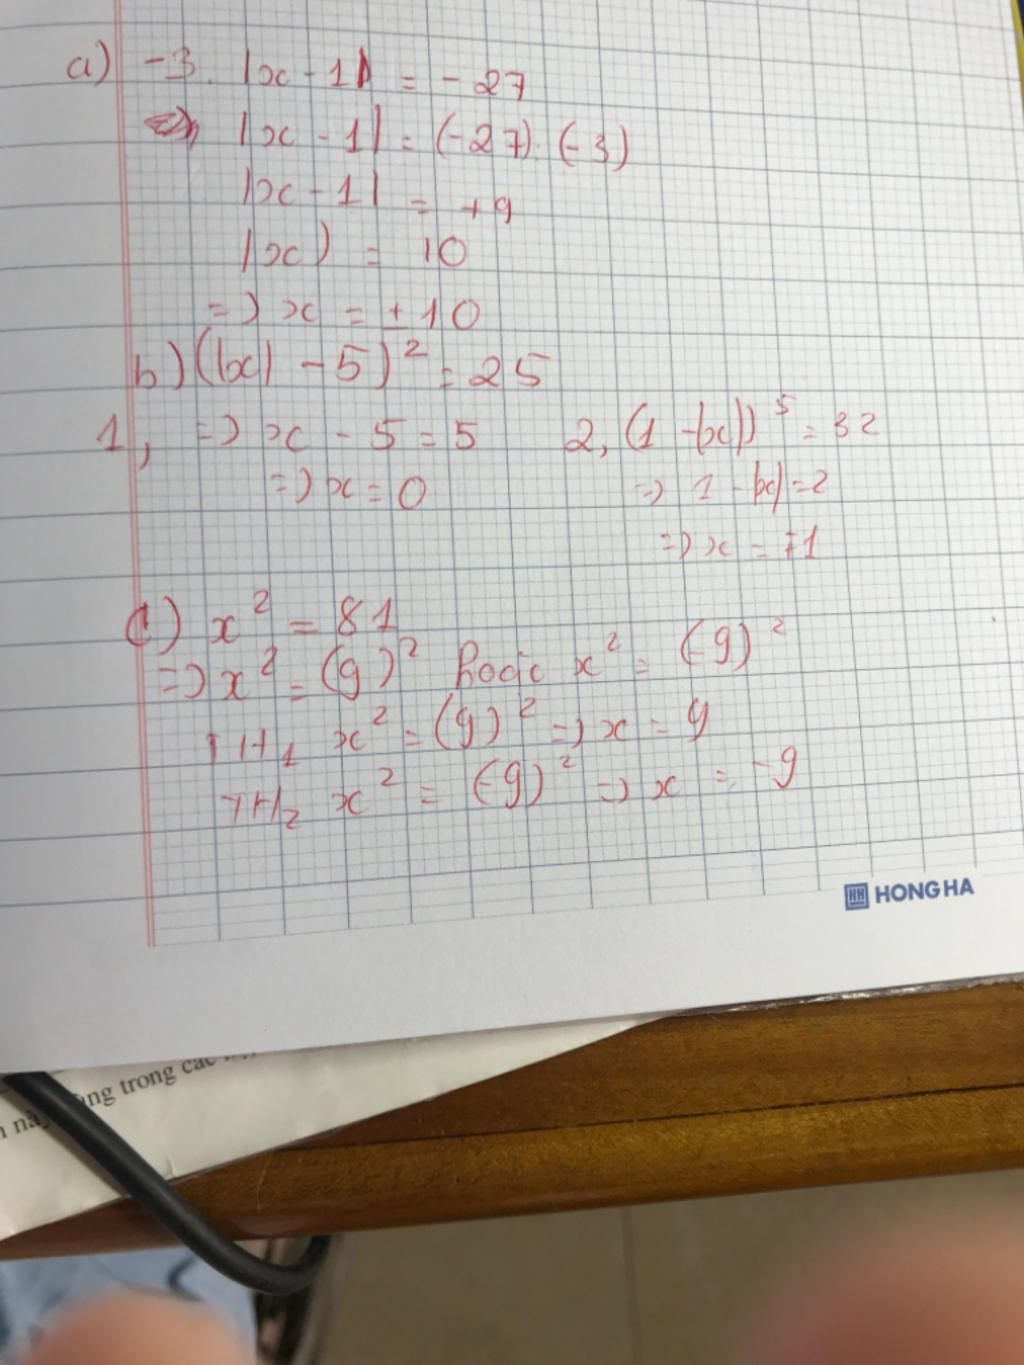 a) -3. |x - 1| = - 27
|x - 1| = (-27). (-3)
|x - 1| = +9
|x| = 10
=> x = ±10
b) (|x| - 5)² = 25
1, => x - 5 = 5
=> x = 0
2, (1 - |x|)⁵ = 32
=> 1 - |x| = 2
=> x = ∓1
c) x² = 81
=> x² = (9)² hoặc x² = (-9)²
TH₁ x² = (9)² => x = 9
TH₂ x² = (-9)² => x = -9
HH HONG HA
ùng trong các